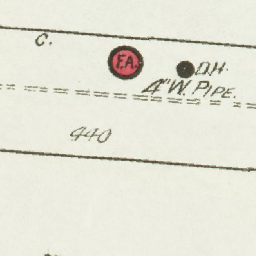 C.
F.A.
D.H.
4" W. PIPE.
440